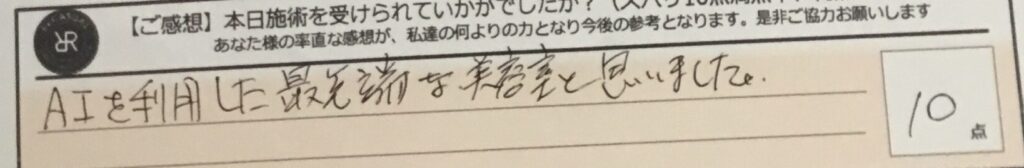 【ご感想】本日施術を受けられていかがでしたか？
あなた様の率直な感想が、私達の何よりの力となり今後の参考となります。是非ご協力お願いします
AIを利用した最先端な美容室と思いました。
10点